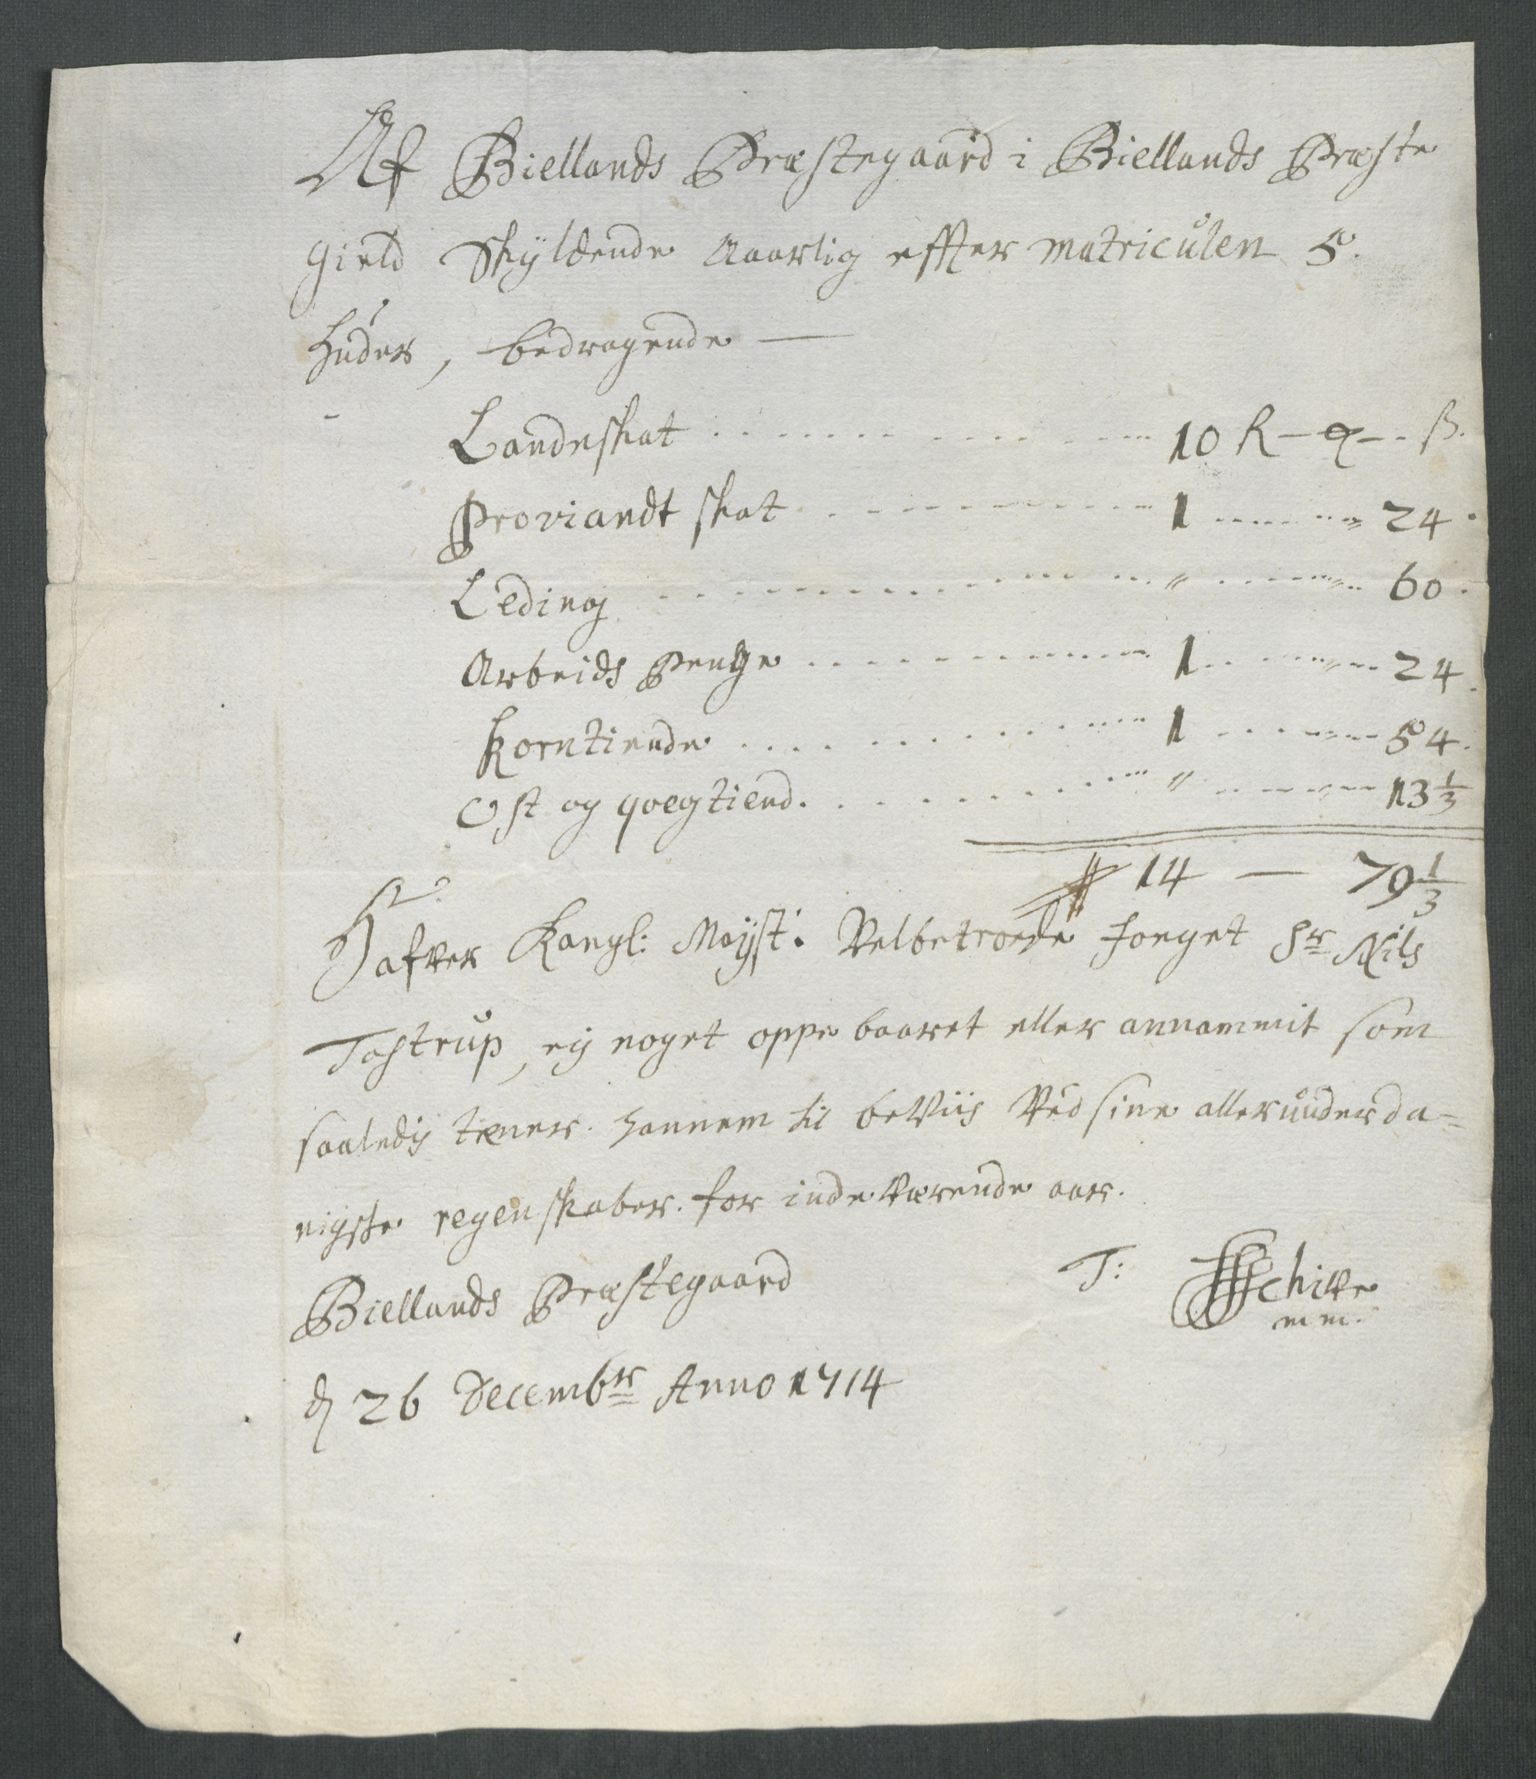 Af Biellands Præstegaard i Biellands Præste
gield Skyldende Aaarlig effter matriculen 5.
huder, bedragende —
Landeskat 10 R — — ß.
Proviandt skat 1 24
Leding „ 60
Arbeids Penge 1 24
Korntiende 1 54
Ost og qvegtiend. „ 13 1/3
14 — 79 1/3
Hafver Kongl: Mayst: Velbetroede foeget Sr Nils
Tostrup, ey noget oppebaaret eller annammit som
saaledis tiener hannem til beviis ved sine allerunderda-
nigste regenskaber for indeværende aar.
Biellands Præstegaard T: Schive
mm.
d 26 Decembr Anno 1714